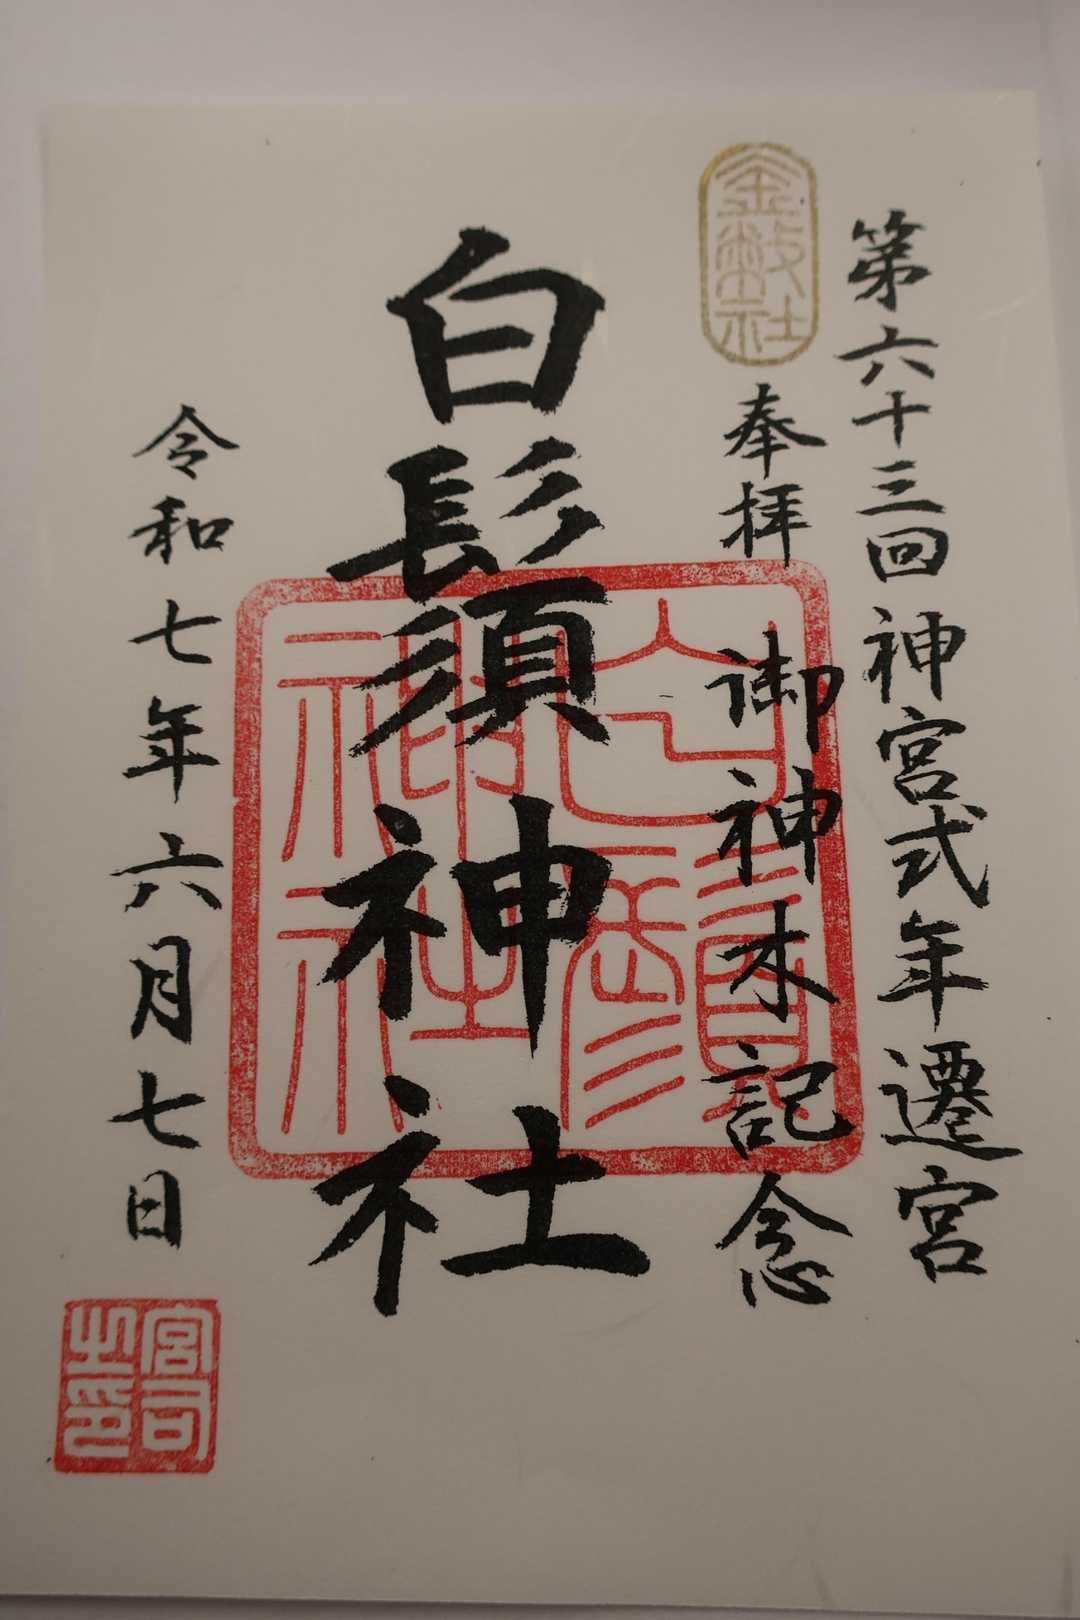 第六十三回神宮式年遷宮
金幣社
奉拝
御神木記念
白鬚神社
白鬚神社
令和七年六月七日
宮司
之印